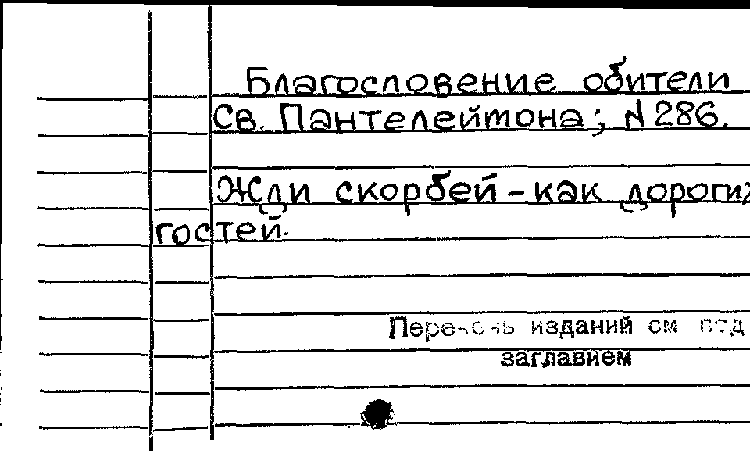 Благословение обители
Св. Пантелеймона; N 286.
Жди скорбей – как дорогих
гостей.
Перечень изданий см под
заглавием